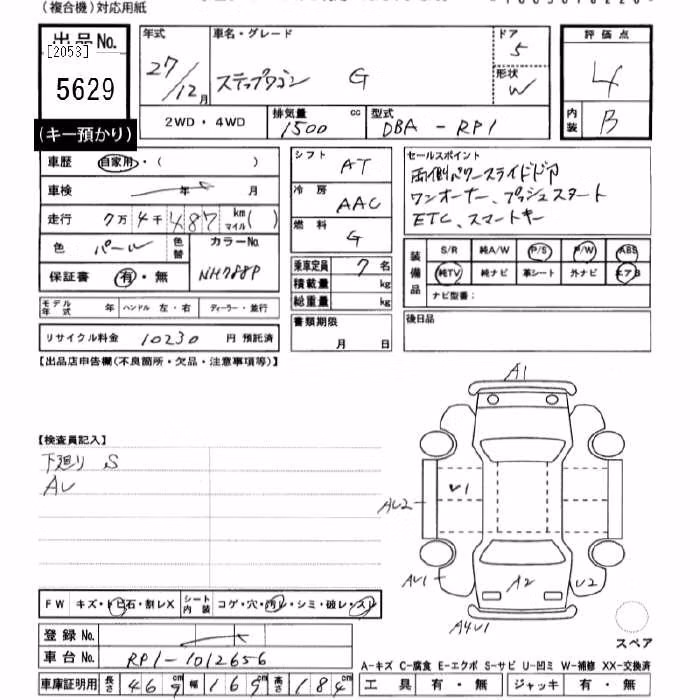 (複合機)対応用紙
出品No.
[2053]
5629
(キー預かり)
年式
27/12月
車名・グレード
ステップワゴン G
ドア
5
形状
W
評価点
4
内装
B
2WD・4WD
排気量
1500 cc
型式
DBA - RP1
車歴 自家用・( )
車検 年 月
走行 7万4千487 km マイル( )
色 パール 色替
カラーNo.
NH788P
保証書 有・無
モデル年式 年 ハンドル 左・右 ディーラー・並行
リサイクル料金 10230 円 預託済
シフト AT
冷房 AAC
燃料 G
乗車定員 7名
積載量 kg
総重量 kg
書類期限
月 日
セールスポイント
両側パワースライドドア
ワンオーナー、プッシュスタート
ETC、スマートキー
装備品
S/R 純A/W P/S P/W ABS
純TV 純ナビ 革シート 外ナビ エアB
ナビ型番:
後日品
【出品店申告欄(不良箇所・欠品・注意事項等)】
【検査員記入】
下廻り S
AU
A1
U1
AU2
AU1
A2
U2
A4U1
スペア
FW キズ・トビ石・割レX シート内装 コゲ・穴・汚レ・シミ・破レ・スレ
登録No.
車台No. RP1-1012656
車庫証明用 長さ 469cm 幅 169cm 高さ 184cm
A-キズ C-腐食 E-エクボ S-サビ U-凹ミ W-補修 XX-交換済
工具 有・無 ジャッキ 有・無